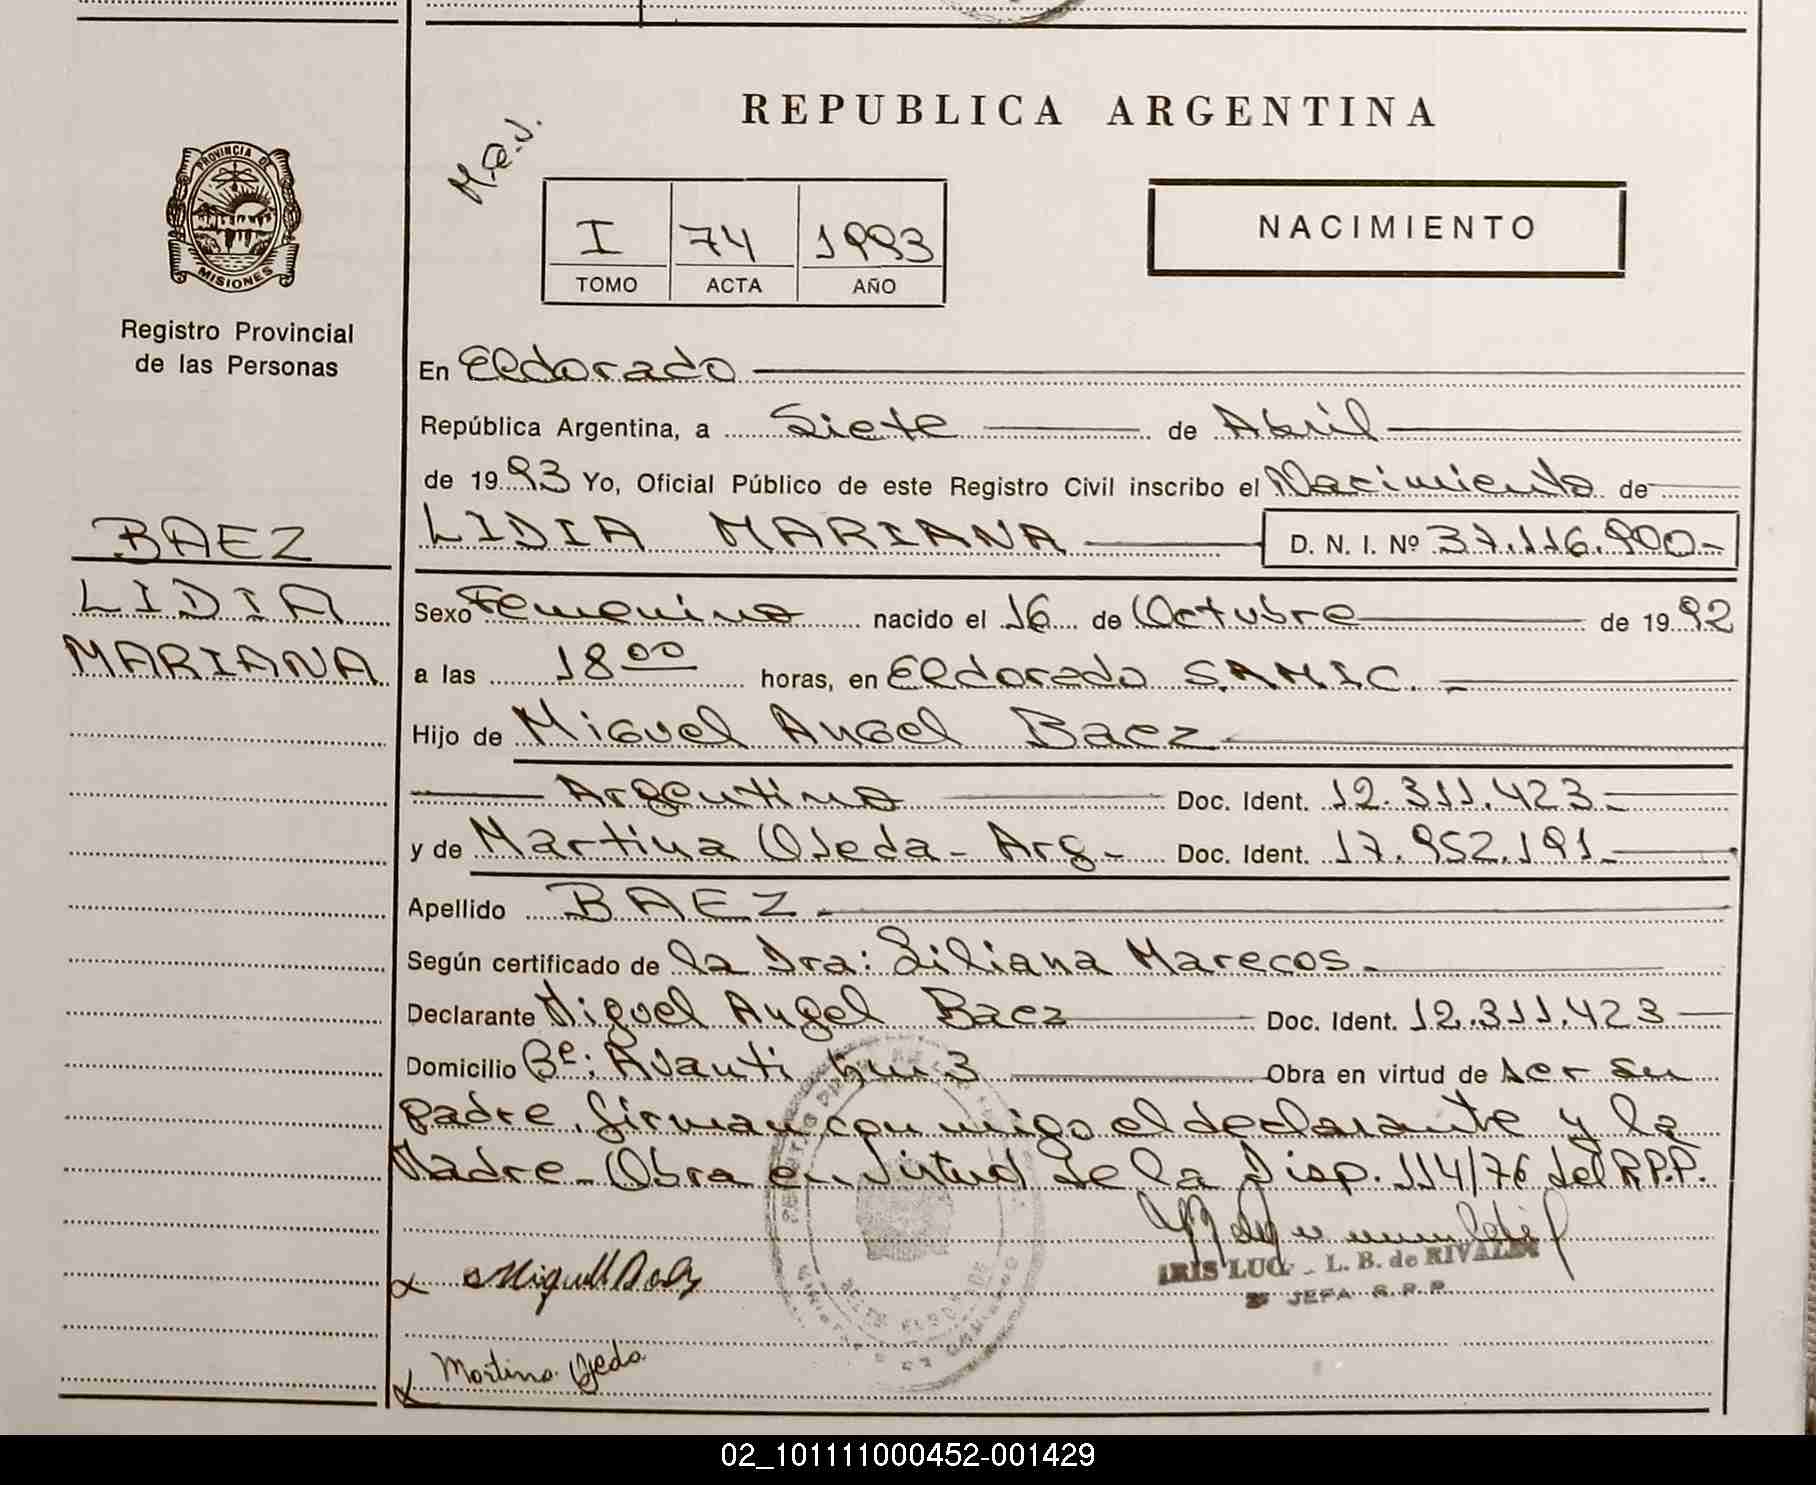 REPUBLICA ARGENTINA
M.e.J.
PROVINCIA DE
MISIONES
Registro Provincial
de las Personas
I 74 1993
TOMO ACTA AÑO
NACIMIENTO
En Eldorado
República Argentina, a Siete de Abril
de 1993 Yo, Oficial Público de este Registro Civil inscribo el Nacimiento de
BAEZ
LIDIA
MARIANA
LIDIA MARIANA D. N. I. Nº 37.116.900-
Sexo Femenino nacido el 16 de Octubre de 1992
a las 18 00 horas, en Eldorado SAMIC.-
Hijo de Miguel Angel Baez
Argentino Doc. Ident. 12.311.423-
y de Martina Ojeda - Arg- Doc. Ident. 17.952.191-
Apellido BAEZ
Según certificado de la Dra: Liliana Marecos-
Declarante Miguel Angel Baez Doc. Ident. 12.311.423
Domicilio Bº: Avanti km 3 Obra en virtud de ser su
padre, firman con migo el declarante y la
Madre- Obra en virtud de la Disp. 114/76 del R.P.P.
IRIS L. B. de
JEFA R.P.P.
x
x Martina Ojeda
02_101111000452-001429